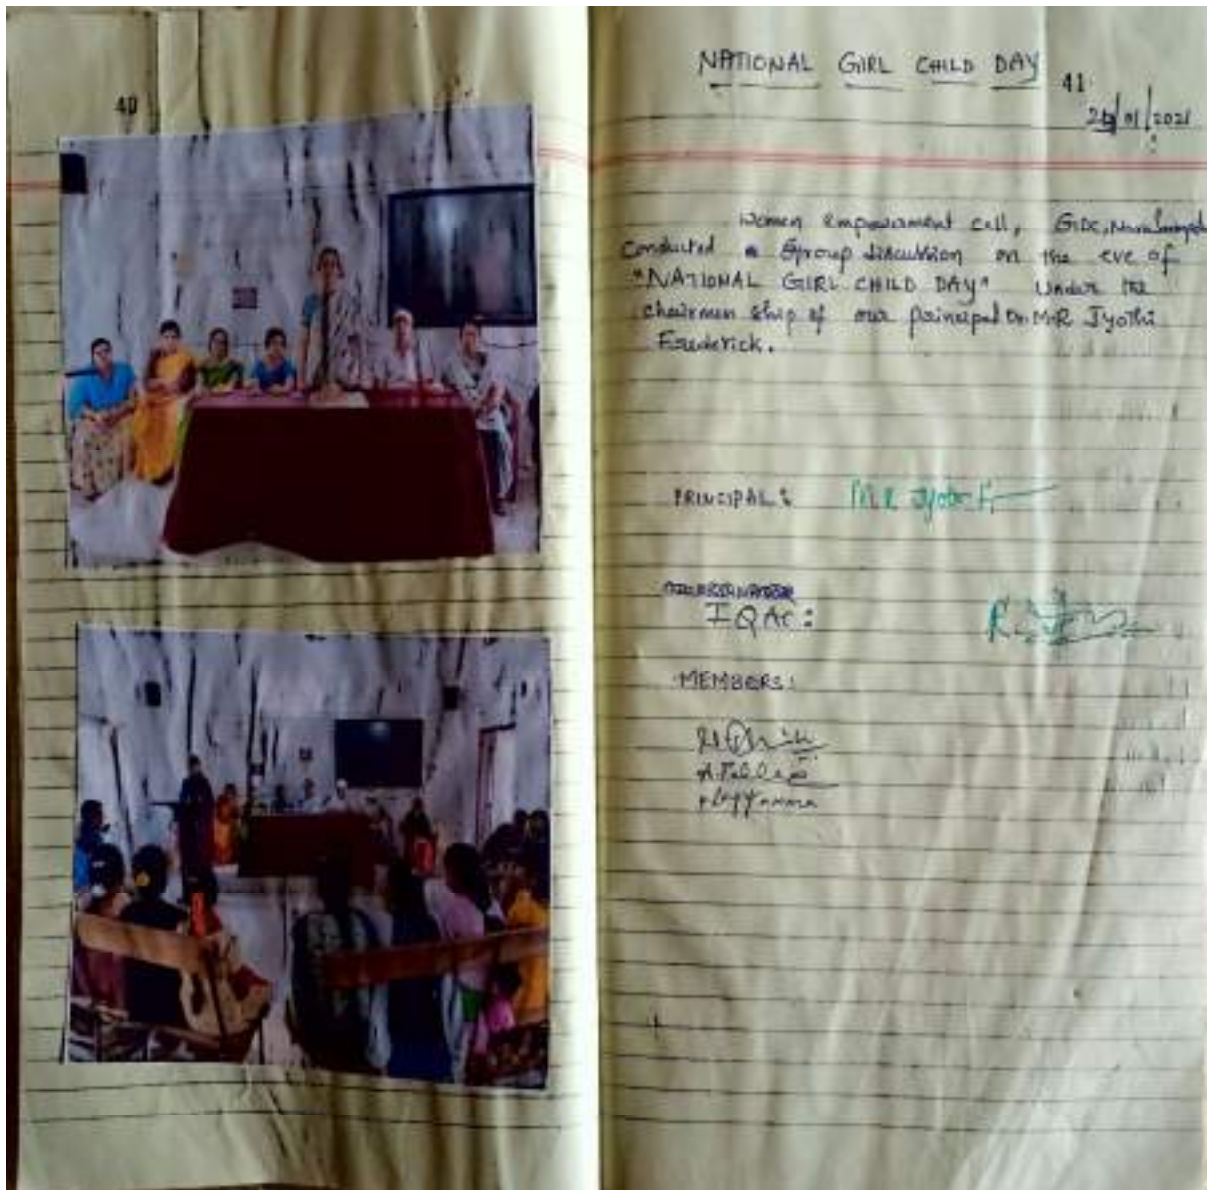 40
NATIONAL GIRL CHILD DAY
41
/01/2021
Women Empowerment cell, GDC,
Conducted a Group discussion on the eve of
"NATIONAL GIRL CHILD DAY" Under the
chairmen ship of our principal Dr. M.R Jyothi
Frederick.
PRINCIPAL: M.R Jyothi F
IQAC:
MEMBERS: